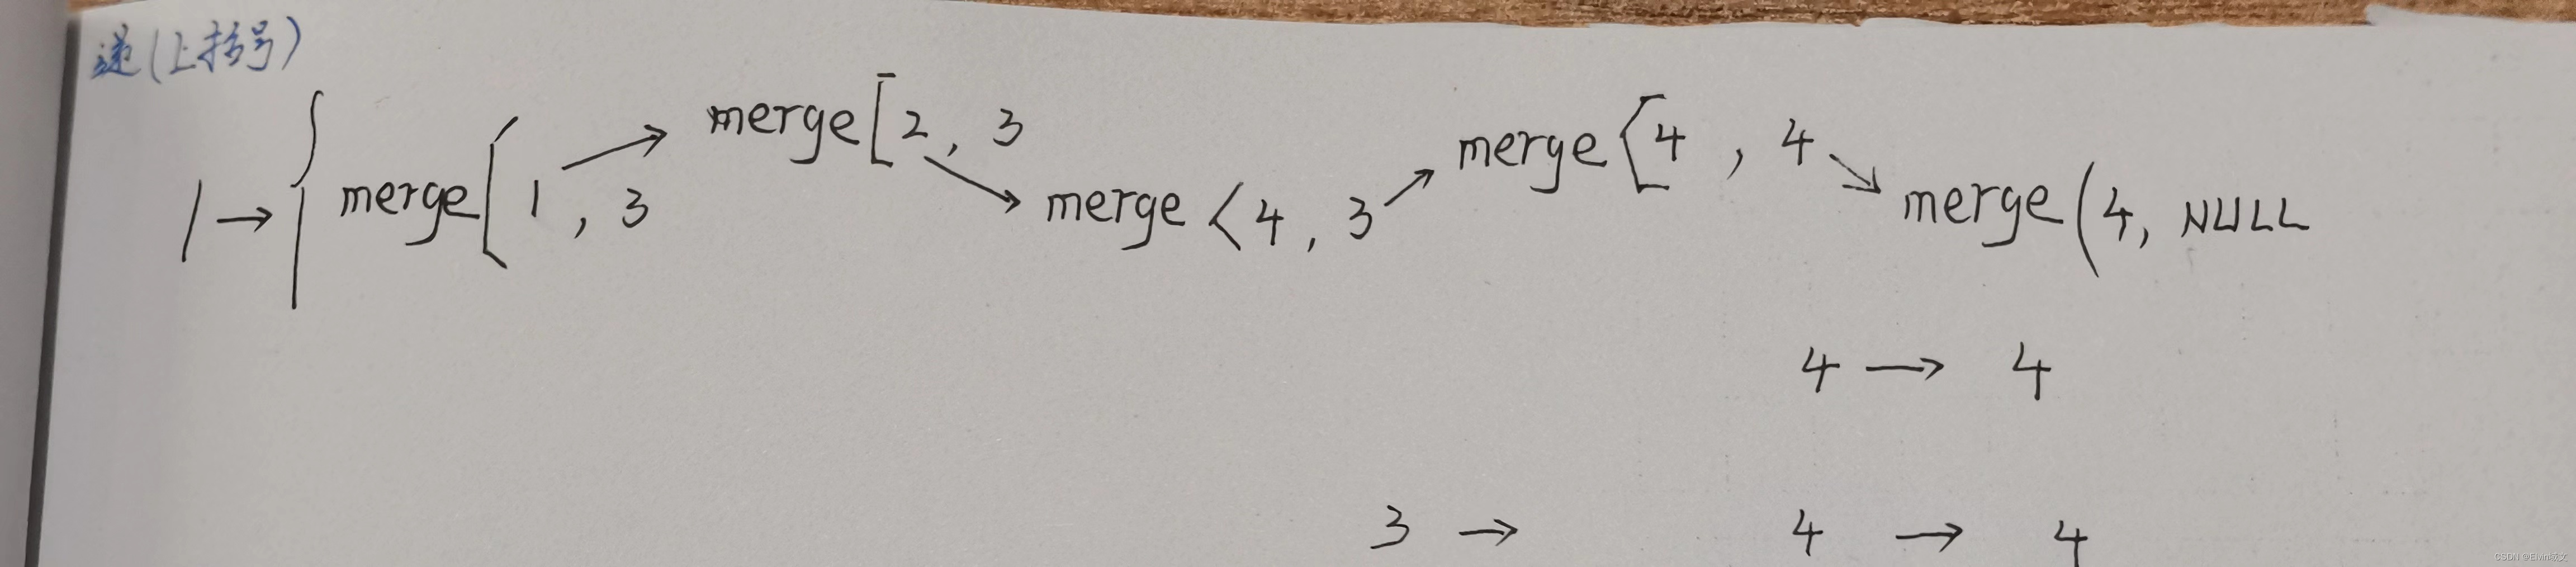 递(上括号)
1 → { merge [ 1 , 3 → merge [ 2 , 3 → merge < 4 , 3 → merge [ 4 , 4 → merge ( 4, NULL
4 → 4
3 → 4 → 4
CSDN @Elvin